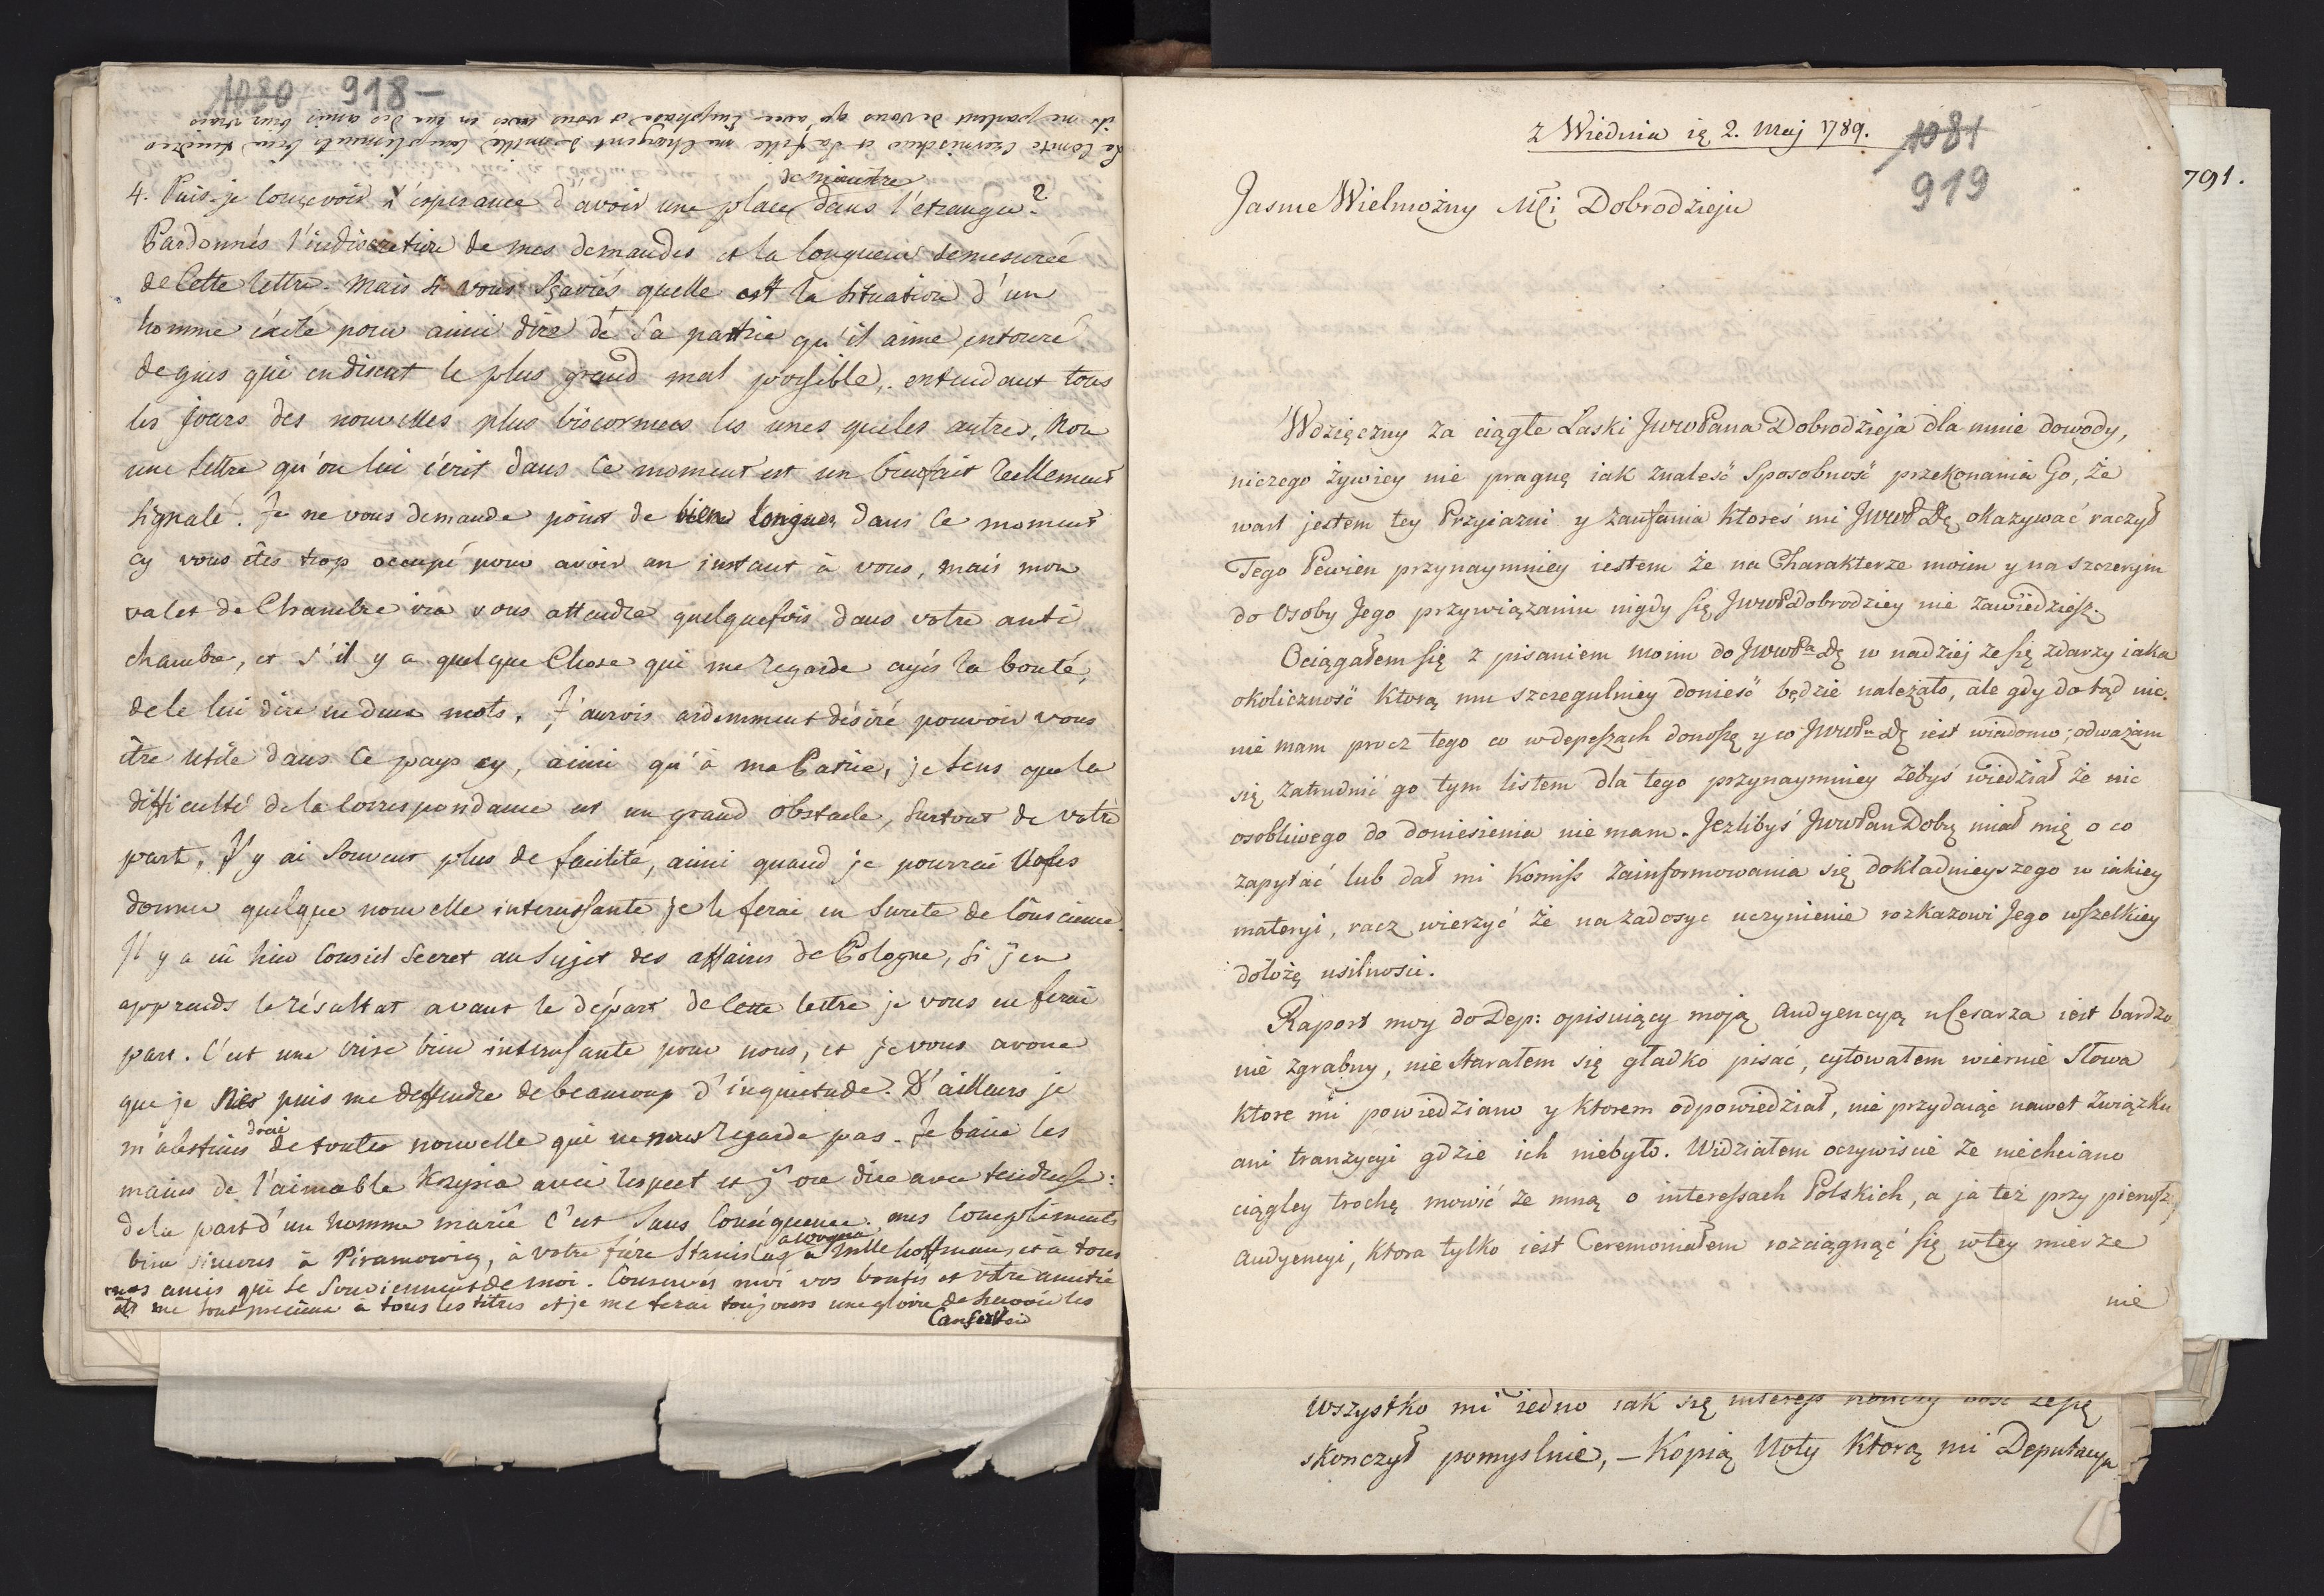 1080 918 –
Le Comte Czernischew et sa fille me chargent de mille complimens bien tendres
ils me parlent de vous qu'avec et vous avés en eux des amis bien vrais
de ministre
4. Puis-je concevoir l'esperance d'avoir une place dans l'etranger?
Pardonnés l'indiscretion de mes demandes et la longueur demesurée
de Cette lettre. Mais si vous sçaviés quelle est la situation d'un
homme éxilé pour ainsi dire de sa patrie qu'il aime, entouré
de gens qui en disent le plus grand mal possible, entendant tous
les jours des nouvelles plus biscornues les unes que les autres,
une lettre qu'on lui écrit dans ce moment est un bienfait reellement
signalé. Je ne vous demande point de bien longues dans ce moment
cy vous êtes trop occupé pour avoir un instant à vous, mais mon
valet de Chambre ira vous attendre quelquefois dans votre anti
chambre, et s'il y a quelque Chose qui me regarde ayés la bonté,
de le lui dire en deux mots. J'aurois ardemment désiré pouvoir vous
être utile dans ce pays cy, ainsi qu'à ma Patrie, je sens que la
difficulté de la Correspondance est un grand obstacle, surtout de votre
part. J'y ai souvent plus de facilité, ainsi quand je pourrai vous
donner quelque nouvelle interessante je le ferai en sureté de Conscience.
Il y a eû hier Conseil secret au sujet des affaires de Pologne, si j'en
apprends le résultat avant le départ de Cette lettre je vous en ferai
part. C'est une crise bien interessante pour nous, et je vous avoue
que je ne puis me deffendre de beaucoup d'inquietude. D'ailleurs je
m'abstiens de toutes nouvelle qui ne nous regarde pas. Je baise les
mains de l'aimable Krysia avec respect et j'ose dire avec tendresse:
de la part d'un homme marié C'est sans Conséquence. mes Complimens
bien sinceres à Piramowicz, à votre frère Stanislas à Woyna à Mlle hoffman, et à tous
mes amis qui se souviennent de moi. Conservés moi vos bontés et votre amitié
me sont precieux à tous les titres et je me ferai toujours une gloire de
z Wiednia ię 2. Maj 1789.
1081
919
Jasnie Wielmożny Mci Dobrodzieju
Wdzięczny za ciągłe Łaski JwwPana Dobrodzieja dla mnie dowody,
niczego żywiey nie pragnę iak znaleść sposobność przekonania Go, że
wart jestem tey Przyiazni y zaufania ktoreś mi JwwP Dę okazywać raczył
Tego Pewien przynaymniey iestem że na Charakterze moim y na szczerym
do Osoby Jego przywiązaniu nigdy się JwwPDobrodziey nie zawiedziesz.
Ociągałem się z pisaniem moim do JwwPa Dę w nadziej ze się zdarzy iaka
okoliczność ktorą mu szczegulniey donieść będzie należało, ale gdy dotąd nic
nie mam procz tego co w depeszach donoszę y co JwwPu Dę iest wiadomo; odważam
się zatrudnić go tym listem dla tego przynaymniey żebyś wiedział że nic
osobliwego do doniesienia nie mam. Jeźlibyś JwwPan Dobrę miał mię o co
zapytać lub dał mi Komiss zainformowania się dokładnieyszego w iakiey
materyi, racz wierzyć że na zadosyc uczynienie rozkazowi Jego wszelkiey
dołożę usilnosci.
Raport moy do Dep: opisuiący moją Audyencyą u Cesarza iest bardzo
nie zgrabny, nie starałem się gładko pisać, cytowałem wiernie słowa
ktore mi powiedziano y ktorem odpowiedział, nie przydaiąc nawet związku
ani tranzycyi gdzie ich niebyło. Widziałem oczywiscie że niechciano
ciągley trochę mowić ze mną o interessach Polskich, a ja też przy pierwszey
Audyencyi, ktora tylko iest Ceremoniałem rozciągnąć się w tey mierze
nie
791.
wszystko mi iedno iak się interess
skonczył pomyslnie, – Kopią Noty ktorą mi Deputacya